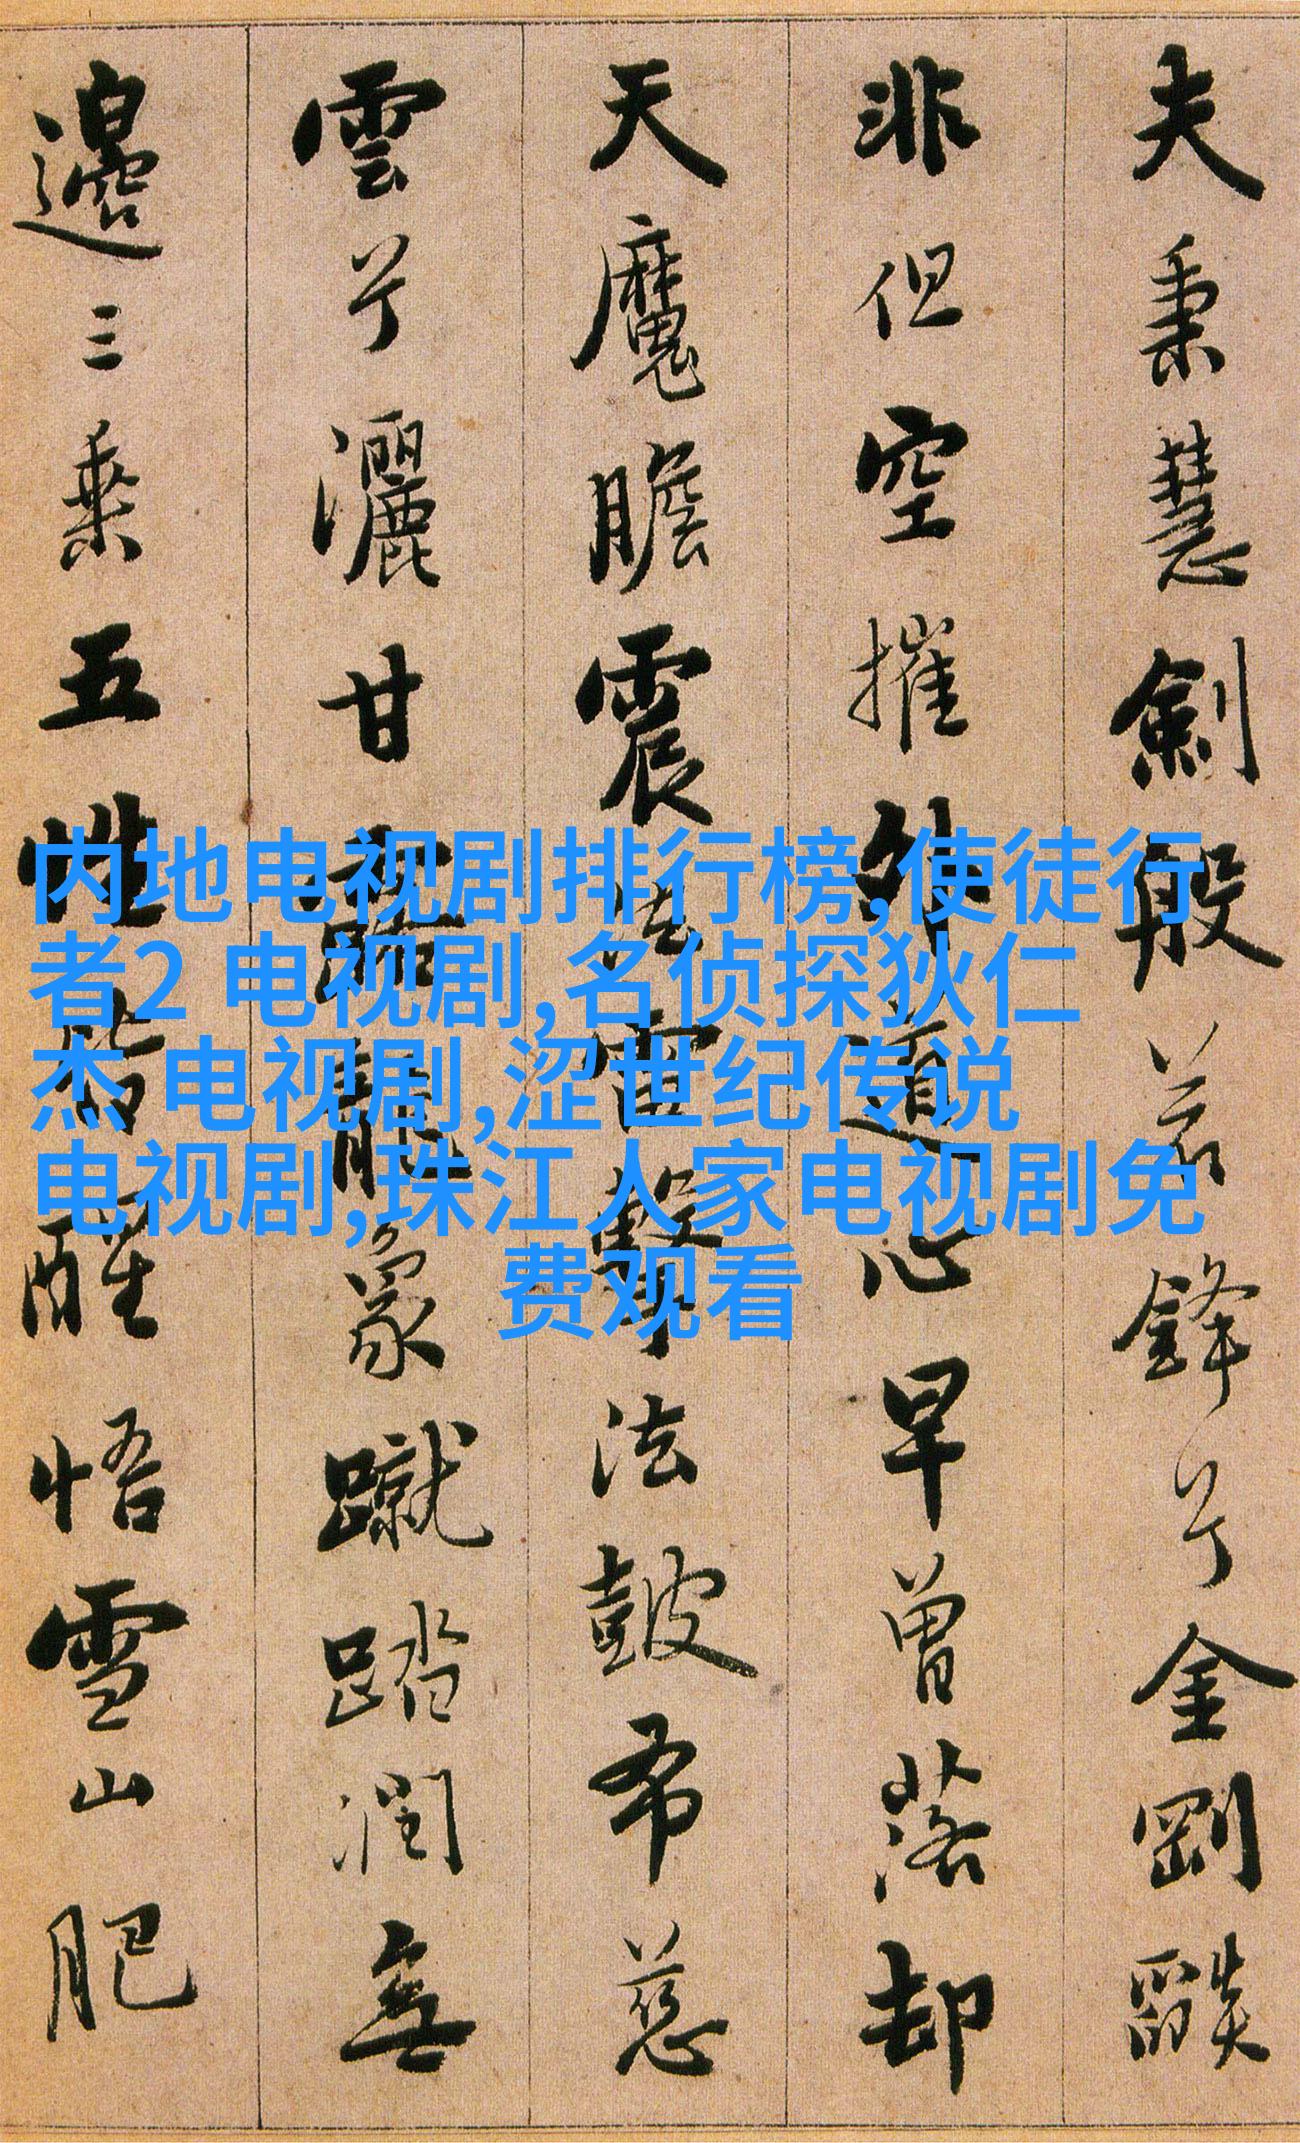 夫秉慧劍般若鋒兮金剛燄
非但空摧外道心早曾落却
天魔膽震法雷擊法鼓布慈
雲兮灑甘露龍象蹴踏潤無
邊三乘五性皆醒悟雪山肥
内地电视剧排行榜,使徒行
者2 电视剧,名侦探狄仁
杰 电视剧,涩世纪传说
电视剧,珠江人家电视剧免
费观看